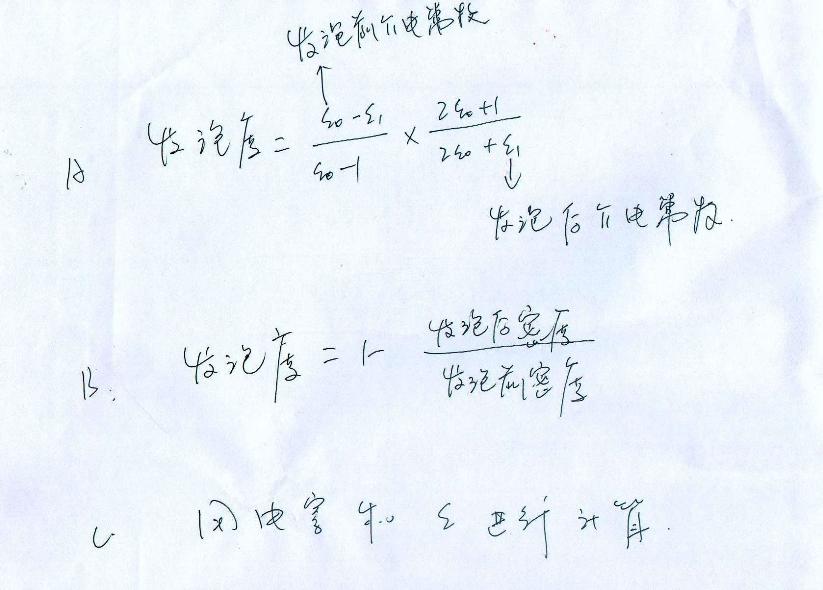 发泡前介电常数
A 发泡度 = (ε0-ε1)/(ε0-1) × (2ε0+1)/(2ε0+ε1)
发泡后介电常数.
B. 发泡度 = 1- 发泡后密度/发泡前密度
C 电容和 ε 进行计算.